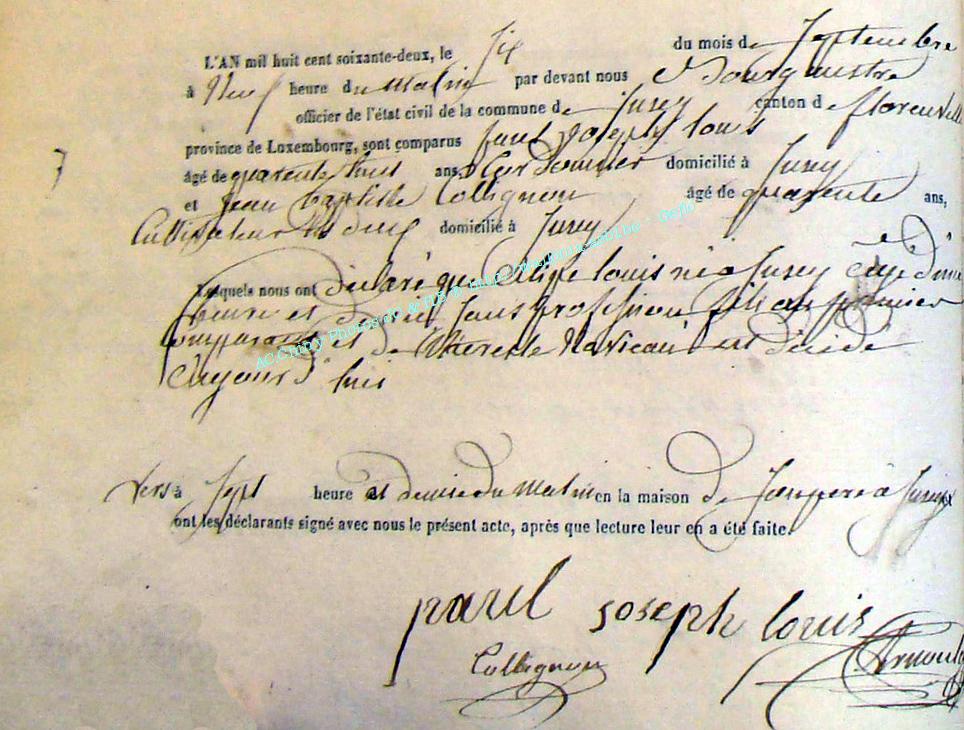 L'AN mil huit cent soixante-deux, le six du mois de Septembre
à Neuf heure du Matin par devant nous Bourgmestre
officier de l'état civil de la commune de Izel canton de florenville
province de Luxembourg, sont comparus Paul Joseph Louis
âgé de quarente ans, Cordonnier domicilié à
et Jean Baptiste Collignon âgé de quarente ans,
Cultivateur domicilié à
Lesquels nous ont déclaré que Louis né à agé d'une
heure et demie sans profession fils du premier
Comparant et de est décédé
Aujourd'hui
vers à sept heure et demie du Matin en la maison de son père à
ont les déclarants signé avec nous le présent acte, après que lecture leur en a été faite.
paul Joseph louis
Collignon
AC Chiny Photos